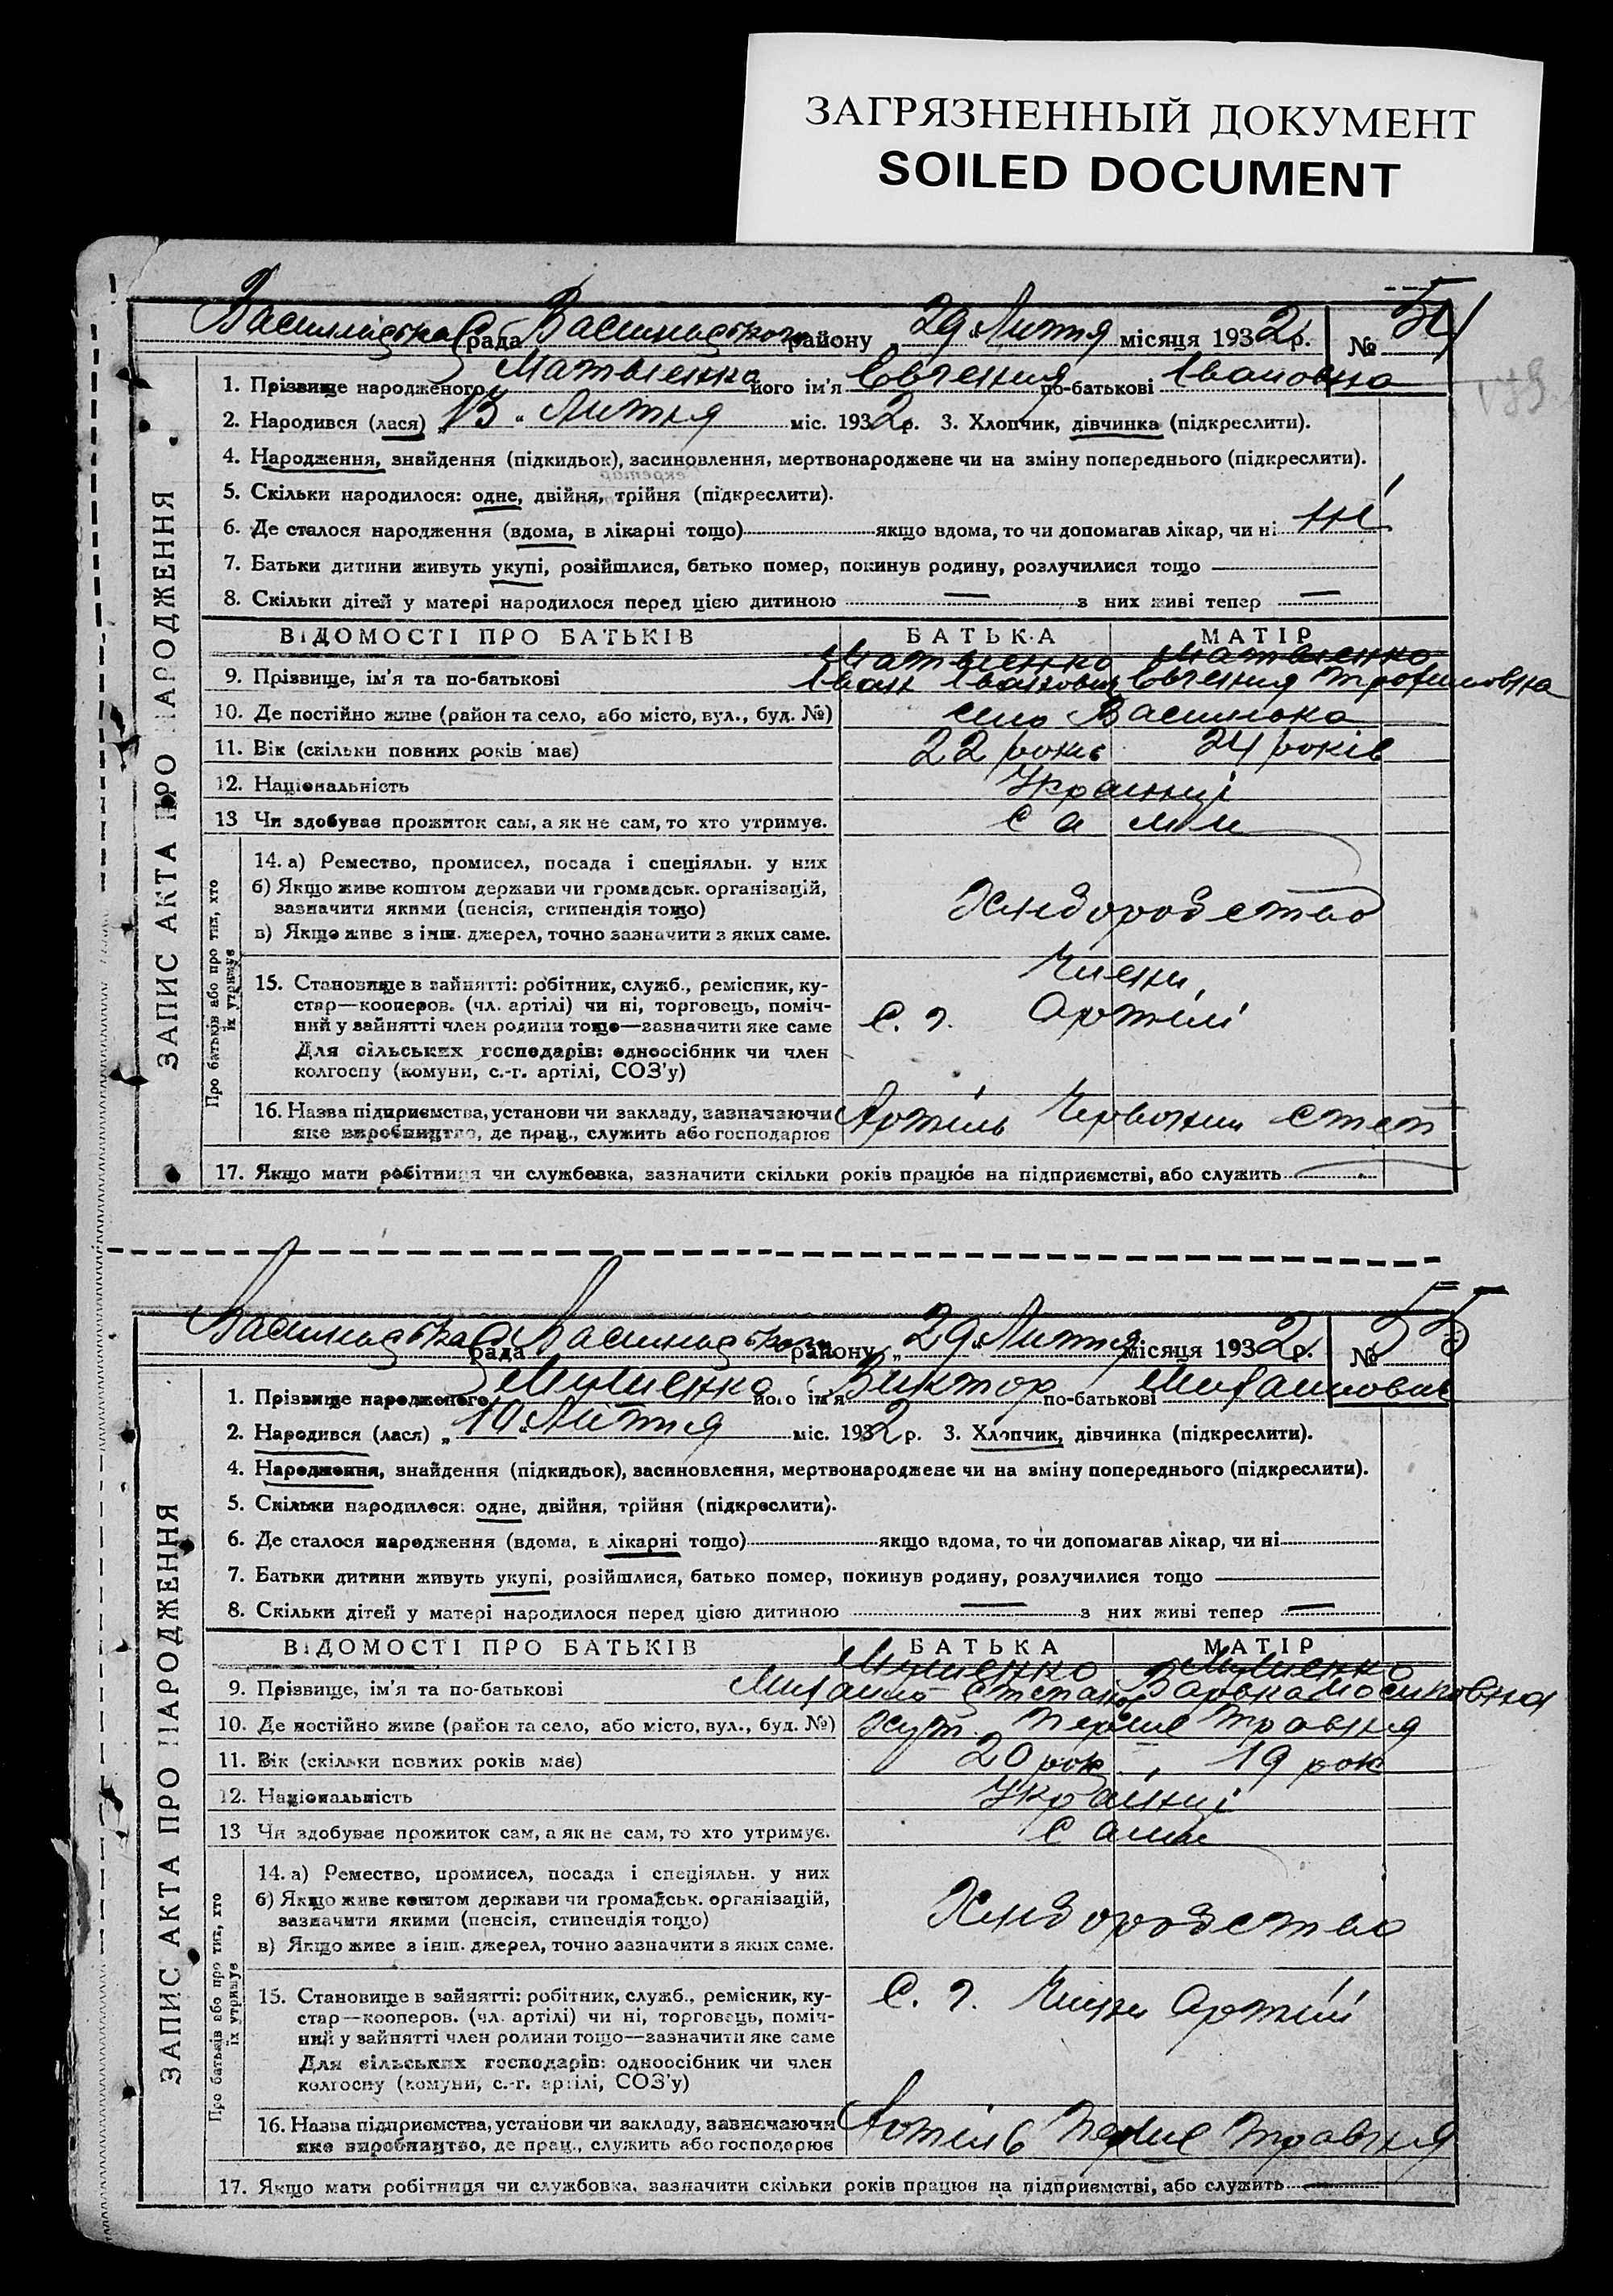 ЗАГРЯЗНЕННЫЙ ДОКУМЕНТ
SOILED DOCUMENT
рада району „29“ Лютня місяця 1932 р. № 54
1. Прізвище народженого Матвієнко його ім'я Євгения по-батькові Івановна
2. Народився (лася) „13“ Лютня міс. 1932 р. 3. Хлопчик, дівчинка (підкреслити).
4. Народження, знайдення (підкидьок), засиновлення, мертвонароджене чи на зміну попереднього (підкреслити).
5. Скільки народилося: одне, двійня, трійня (підкреслити).
6. Де сталося народження (вдома, в лікарні тощо) якщо вдома, то чи допомагав лікар, чи ні ні
7. Батьки дитини живуть укупі, розійшлися, батько помер, покинув родину, розлучилися тощо
8. Скільки дітей у матері народилося перед цією дитиною — з них живі тепер —
ЗАПИС АКТА ПРО НАРОДЖЕННЯ
ВІДОМОСТІ ПРО БАТЬКІВ БАТЬКА МАТІР
Матвиенко Матвиенко
9. Прізвище, ім'я та по-батькові Іван Іванович Євгения Трофимовна
10. Де постійно живе (район та село, або місто, вул., буд. №) село
11. Вік (скільки повних років має) 22 років 24 років
12. Національність Українці
13 Чи здобуває прожиток сам, а як не сам, то хто утримує. сами
Про батьків або про тих, хто
їх утримує
14. а) Ремество, промисел, посада і спеціяльн. у них
б) Якщо живе коштом держави чи громадськ. організацій,
зазначити якими (пенсія, стипендія тощо) Хлібородство
в) Якщо живе з інш. джерел, точно зазначити з яких саме.
Члени
15. Становище в зайнятті: робітник, служб., ремісник, ку-
стар—кооперов. (чл. артілі) чи ні, торговець, поміч- С. г. Артілі
ний у зайнятті член родини тощо—зазначити яке саме
Для сільських господарів: одноосібник чи член
колгоспу (комуни, с.-г. артілі, СОЗ'у)
16. Назва підприємства, установи чи закладу, зазначаючи Артіль Червоний Степ
яке виробництво, де прац., служить або господарює
17. Якщо мати робітниця чи службовка, зазначити скільки років працює на підприємстві, або служить
рада району „29“ Лютня місяця 1932 р. № 55
1. Прізвище народженого його ім'я Виктор по-батькові Михайлович
2. Народився (лася) „10“ Лютня міс. 1932 р. 3. Хлопчик, дівчинка (підкреслити).
4. Народження, знайдення (підкидьок), засиновлення, мертвонароджене чи на зміну попереднього (підкреслити).
5. Скільки народилося: одне, двійня, трійня (підкреслити).
6. Де сталося народження (вдома, в лікарні тощо) якщо вдома, то чи допомагав лікар, чи ні
7. Батьки дитини живуть укупі, розійшлися, батько помер, покинув родину, розлучилися тощо
8. Скільки дітей у матері народилося перед цією дитиною — з них живі тепер —
ЗАПИС АКТА ПРО НАРОДЖЕННЯ
ВІДОМОСТІ ПРО БАТЬКІВ БАТЬКА МАТІР
9. Прізвище, ім'я та по-батькові Михайло
10. Де постійно живе (район та село, або місто, вул., буд. №) Хут. Перше Травня
11. Вік (скільки повних років має) 20 рок. 19 рок
12. Національність Українці
13 Чи здобуває прожиток сам, а як не сам, то хто утримує. сами
Про батьків або про тих, хто
їх утримує
14. а) Ремество, промисел, посада і спеціяльн. у них
б) Якщо живе коштом держави чи громадськ. організацій,
зазначити якими (пенсія, стипендія тощо) Хлібородство
в) Якщо живе з інш. джерел, точно зазначити з яких саме.
15. Становище в зайнятті: робітник, служб., ремісник, ку- С. г. Члени Артілі
стар—кооперов. (чл. артілі) чи ні, торговець, поміч-
ний у зайнятті член родини тощо—зазначити яке саме
Для сільських господарів: одноосібник чи член
колгоспу (комуни, с.-г. артілі, СОЗ'у)
16. Назва підприємства, установи чи закладу, зазначаючи Артіль Перше Травня
яке виробництво, де прац., служить або господарює
17. Якщо мати робітниця чи службовка, зазначити скільки років працює на підприємстві, або служить